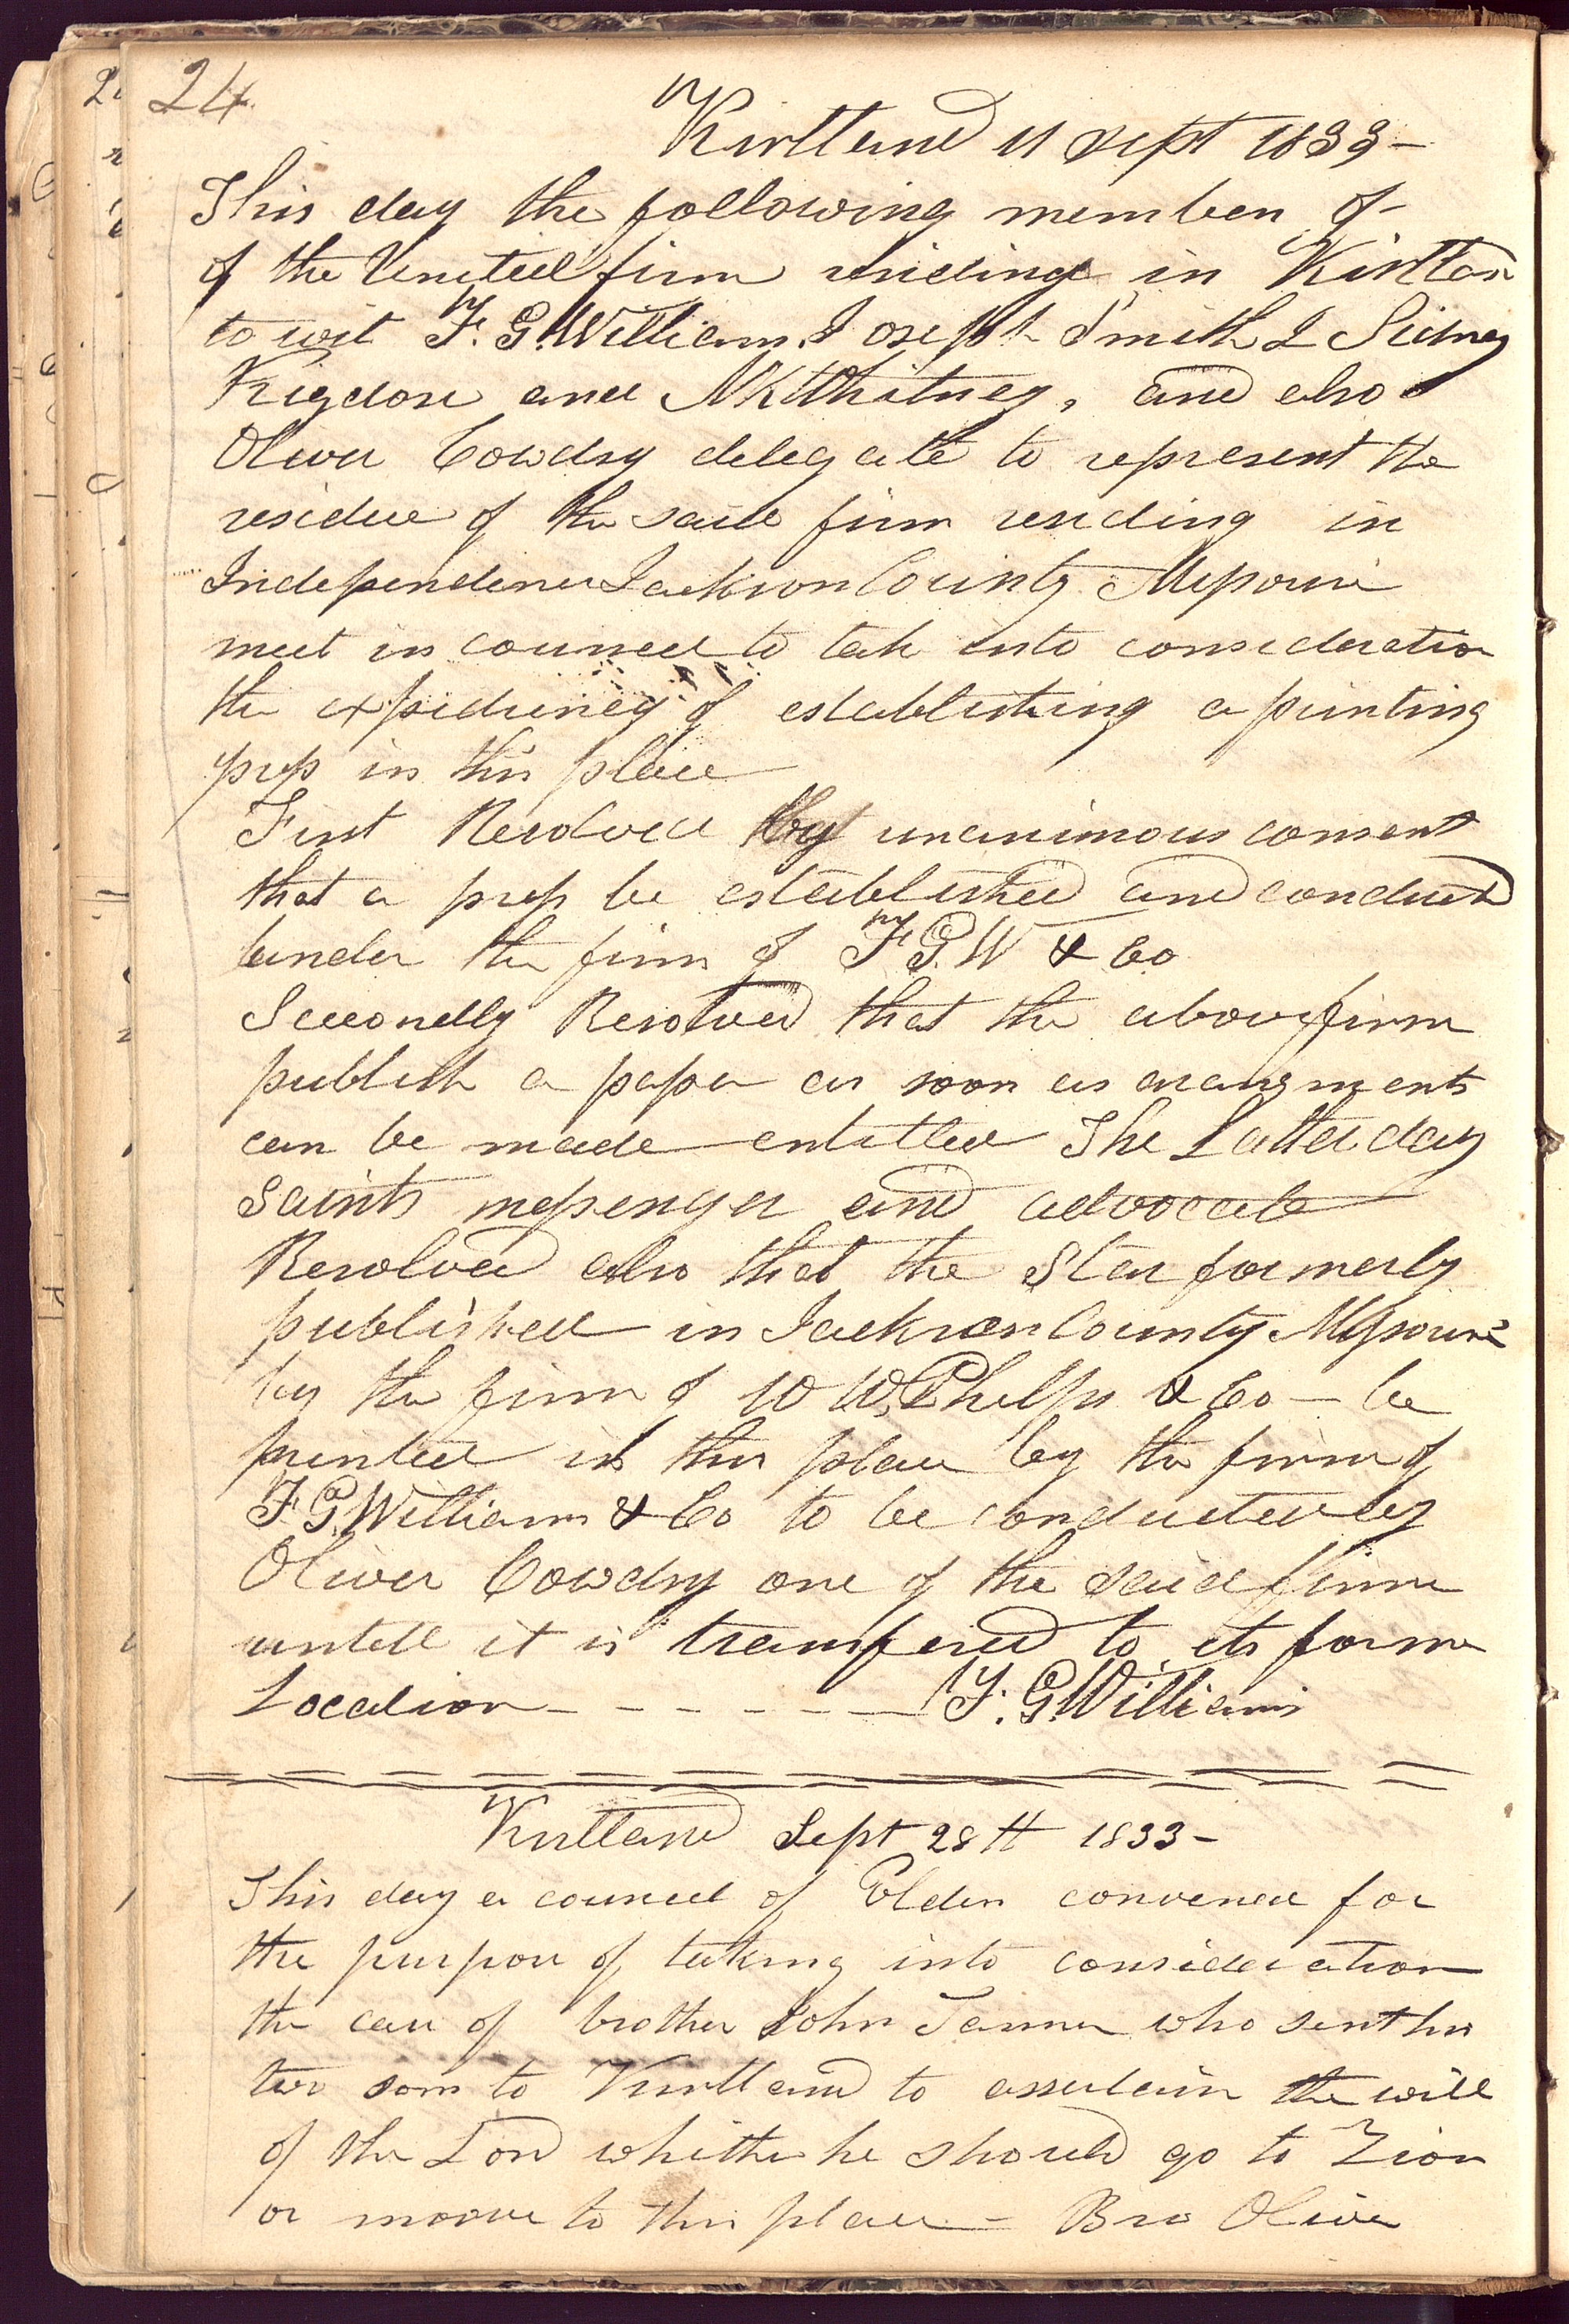 24
Kirtland 11 Sept 1833—
This day the following members of
of the United firm residing in Kirtlan
to wit F. G. Williams Joseph Smith & Sidney
Rigdon and N K Whitney, and also
Oliver Cowdry delegate to represent the
residue of the said firm residing in
Independence Jackson County Missouri
meet in councel to take into consideration
the expidiency of establishing a printing
press in this place
First Resolved by unanimous consent
that a press be established and conducted
under the firm of F. G. W & Co
Seccondly Resolved that the above firm
publish a paper as soon as arangments
can be made entitled The Latter day
Saints messenger and advocate
Resolved also that the Star formerly
published in Jackson County Missouri
by the firm of W W. Phelps & Co — be
printed in this place by the firm of
F. G. Williams & Co to be conducted by
Oliver Cowdry one of the said firm
untill it is transfered to its former
Location — — — — — — F. G. Williams
Kirtland Sept 28th 1833—
This day a councel of Elders convened for
the purpose of takeing into consideration
the case of brother John Tanner who sent his
two sons to Kirtland to assertain the will
of the Lord whither he should go to Zion
or moove to this place — Bro Oliver